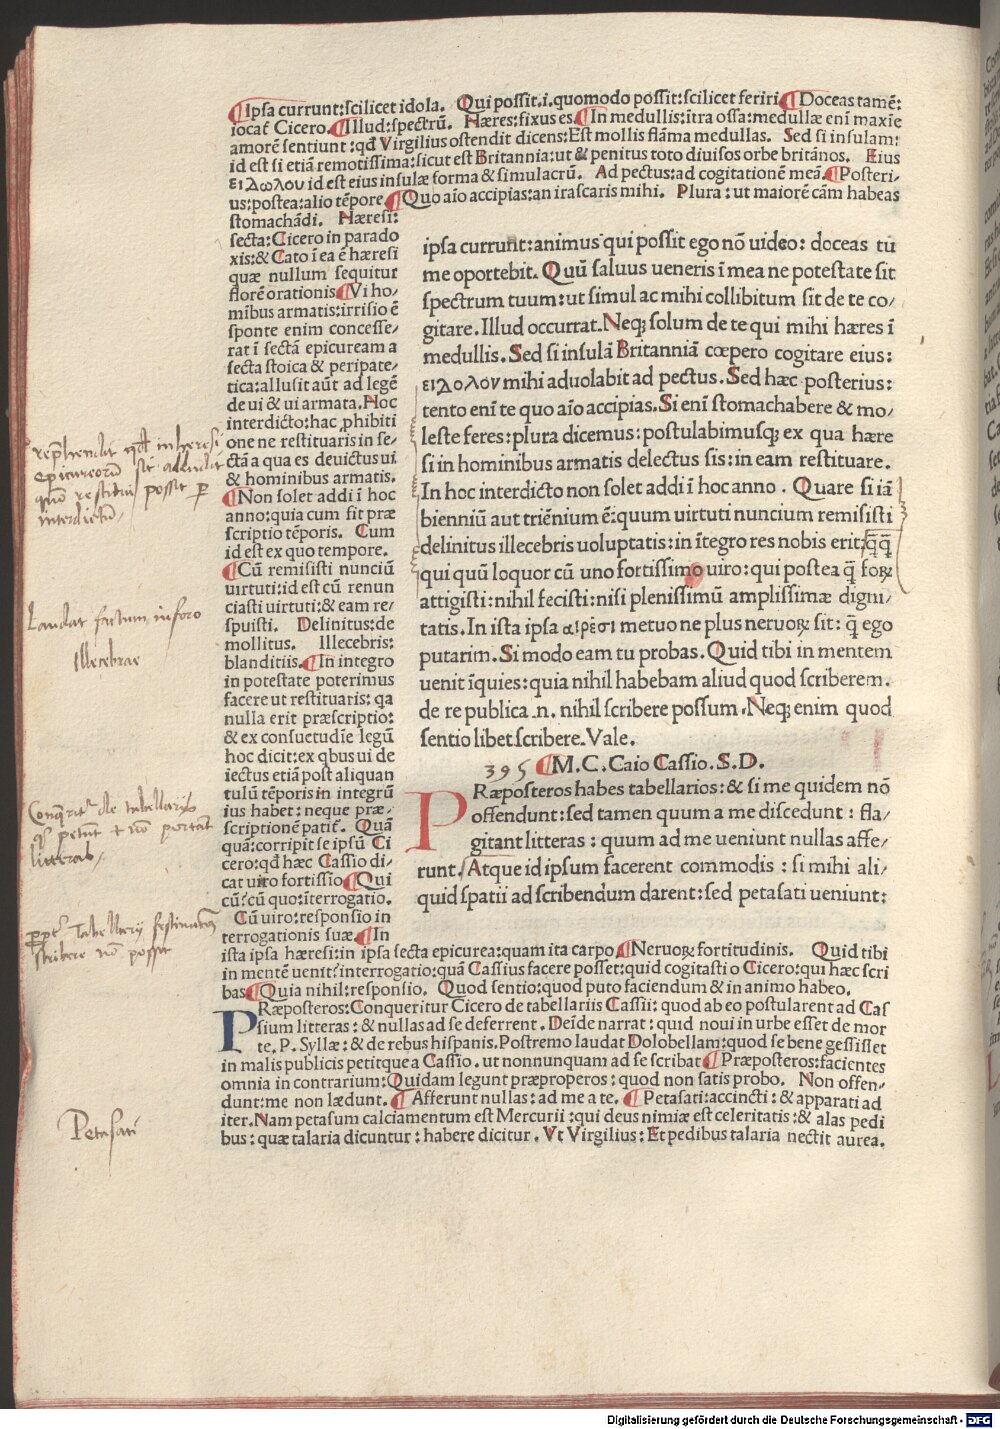 ¶Ipsa currunt:scilicet idola. Qui possit.i.quomodo possit:scilicet feriri¶Doceas tamē:
iocať Cicero.¶Illud:spectrū. Hæres:fixus es.¶In medullis:ītra ossa:medullæ enī maxīe
amorē sentiunt:qđ Virgilius ostendit dicens:Est mollis flāma medullas. Sed si insulam:
id est si etiā remotissima:sicut est Britannia:ut & penitus toto diuisos orbe britānos. Eius
ειΔωλου id est eius insulæ forma & simulacrū. Ad pectus:ad cogitationē meā.¶Posteri-
us:postea:alio tēpore¶Quo aīo accipias:an irascaris mihi. Plura:ut maiorē cām habeas
stomachādi. Hæresi:
secta:Cicero in parado
xis:& Cato ī ea ē hæresi
quæ nullum sequitur
florē orationis¶Vi ho/
mībus armatis:irrisio ē
sponte enim concesse/
rat ī sectā epicuream a
secta stoica & peripate/
tica:allusit aūt ad legē
de ui & ui armata.Hoc
interdicto:hac ,phibiti
one ne restituaris in se/
ctā a qua es deuictus ui
& hominibus armatis.
¶Non solet addi ī hoc
anno:quia cum sit præ
scriptio tēporis. Cum
id est ex quo tempore.
¶Cū remisisti nunciū
uirtuti:id est cū renun
ciasti uirtuti:& eam re/
spuisti. Delinitus:de
mollitus. Illecebris:
blanditiis.¶In integro
in potestate poterimus
facere ut restituaris:qa
nulla erit præscriptio:
& ex consuetudīe legū
hoc dicit:ex qbus ui de
iectus etiā post aliquan
tulū tēporis in integrū
ius habet:neque præ/
scriptionē patiť. Quā
quā:corripit se ipsū Ci
cero:qđ hæc Cassio di/
cat uiro fortissio¶Qui
cū?cū quo:īterrogatio.
Cū uiro:responsio in
terrogationis suæ.¶In
ipsa currunt:animus qui possit ego nō uideo: doceas tu
me oportebit. Quū saluus ueneris ī mea ne potestate sit
spectrum tuum:ut simul ac mihi collibitum sit de te co/
gitare. Illud occurrat.Neqʒ solum de te qui mihi hæres ī
medullis. Sed si insulā Britanniā cœpero cogitare eius:
ειΔολου mihi aduolabit ad pectus. Sed hæc posterius:
tento enī te quo aīo accipias. Si enī stomachabere & mo/
leste feres:plura dicemus:postulabimusqʒ ex qua hære
si in hominibus armatis delectus sis:in eam restituare.
In hoc interdicto non solet addi ī hoc anno. Quare si iā
bienniū aut triēnium ē:quum uirtuti nuncium remisisti
delinitus illecebris uoluptatis:in ītegro res nobis erit:q̄q̄
qui quū loquor cū uno fortissimo uiro:qui postea q̄ foꝝ
attigisti:nihil fecisti:nisi plenissimū amplissimæ digni/
tatis.In ista ipsa αιρέσι metuo ne plus neruoꝝ sit: q̄ ego
putarim. Si modo eam tu probas. Quid tibi in mentem
uenit īquies:quia nihil habebam aliud quod scriberem.
de re publica .n. nihil scribere possum.Neqʒ enim quod
sentio libet scribere.Vale.
395 ¶M.C.Caio Cassio.S.D.
PRæposteros habes tabellarios:& si me quidem nō
offendunt:sed tamen quum a me discedunt: fla/
gitant litteras: quum ad me ueniunt nullas affe/
runt. Atque id ipsum facerent commodis: si mihi ali/
quid spatii ad scribendum darent:sed petasati ueniunt:
ista ipsa hæresi:in ipsa secta epicurea:quam ita carpo.¶Neruoꝝ fortitudinis. Quid tibi
in mentē uenit?interrogatio:quā Cassius facere posset:quid cogitasti o Cicero:qui hæc scri
bas¶Quia nihil:responsio. Quod sentio:quod puto faciendum & in animo habeo.
PRæposteros:Conqueritur Cicero de tabellariis Cassii: quod ab eo postularent ad Cas
sium litteras: & nullas ad se deferrent. Deīde narrat: quid noui in urbe esset de mor
te. P. Syllæ: & de rebus hispanis.Postremo laudat Dolobellam:quod se bene gessisset
in malis publicis petitque a Cassio. ut nonnunquam ad se scribat¶Præposteros:facientes
omnia in contrarium:Quidam legunt præproperos: quod non satis probo. Non offen/
dunt:me non lædunt.¶Afferunt nullas: ad me a te.¶Petasati:accincti: & apparati ad
iter.Nam petasum calciamentum est Mercurii:qui deus nimiæ est celeritatis:& alas pedi
bus: quæ talaria dicuntur: habere dicitur. Vt Virgilius: Et pedibus talaria nectit aurea.
interdictū
Laudat factum in foro
Illecebrae
Conqueritʳ de tabellarijs
litteras
Petasati
Digitalisierung gefördert durch die Deutsche Forschungsgemeinschaft - DFG